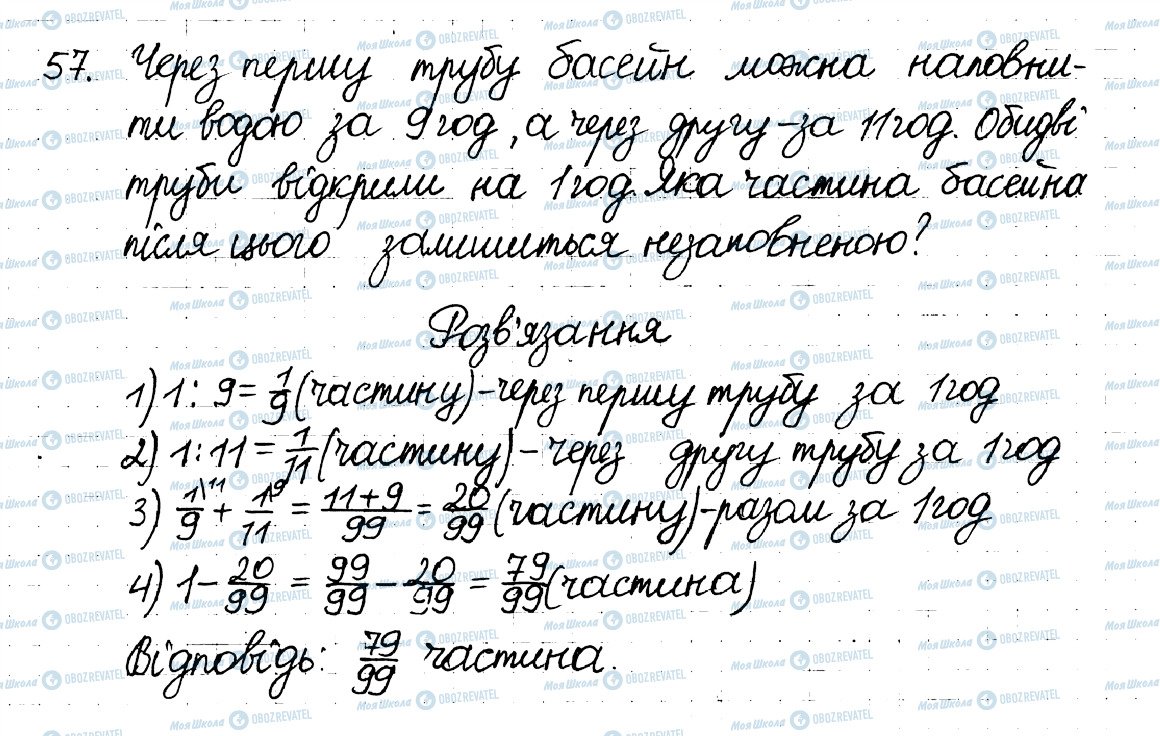 57. Через першу трубу басейн можна наповни-
ти водою за 9 год, а через другу - за 11 год. Обидві
труби відкрили на 1 год. Яка частина басейна
після цього залишиться незаповненою?
Розв'язання
1) 1 : 9 = 1/9 (частину) - через першу трубу за 1 год
2) 1 : 11 = 1/11 (частину) - через другу трубу за 1 год
3) 1\11/9 + 1\9/11 = 11+9/99 = 20/99 (частину) - разом за 1 год
4) 1 - 20/99 = 99/99 - 20/99 = 79/99 (частина)
Відповідь: 79/99 частина.
МояШкола OBOZREVATEL